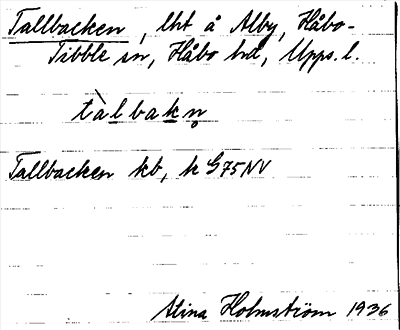 Tallbacken, lht å Alby, Håbo-
Tibble sn, Håbo hd, Upps. l.
tàlbakn̥
Tallbacken kb, k G75NV
Stina Holmström 1936